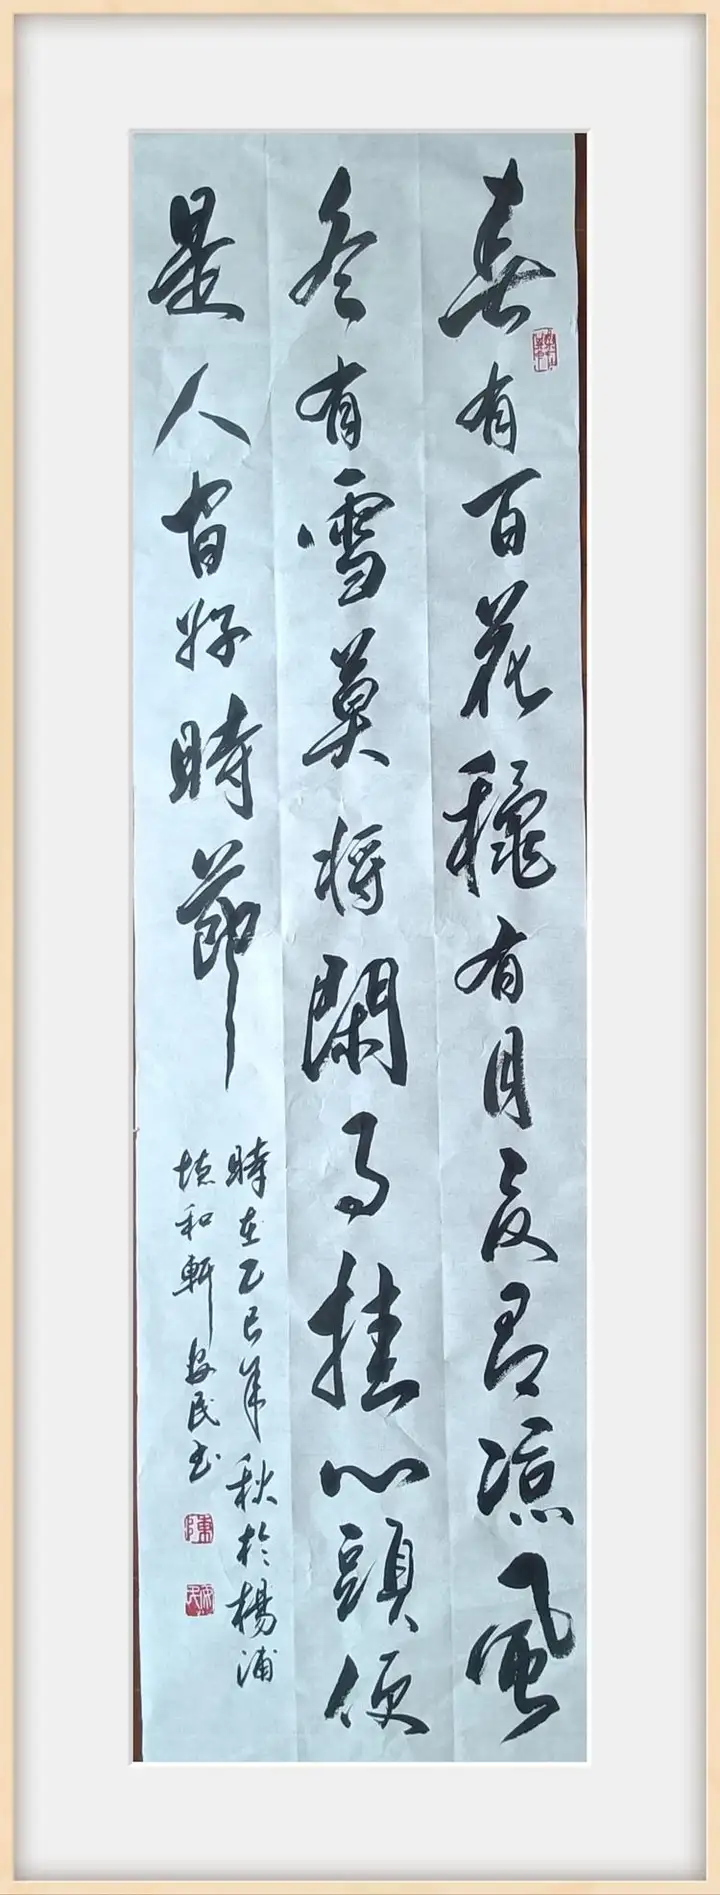 春有百花穐有月夏有涼風
冬有雪莫将閑事挂心頭便
是人間好時節
時在乙巳年秋於楊浦
和軒安民書
陳